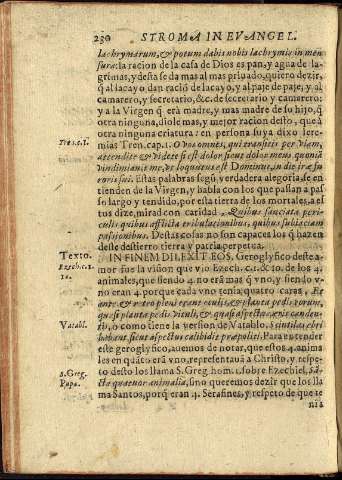 230 STROMA IN EVANGEL.
lachrymarum, & potum dabis nobis lachrymis in men
sura: la racion de la casa de Dios es pan, y agua de la-
grimas, y desta se da mas al mas priuado, quiero dezir,
q̃ al lacayo dan racio de lacayo, y al paje de paje, y al
camarero, y secretario, &c. de secretario y camarero:
y a la Virgen q̃ erà madre, y mas madre de su hijo, q̃
otra ninguna, diole mas, y mejor racion desto, que à
otra ninguna criatura: en persona suya dixo Iere-
Tre. 1. c. 1.
mias Tren. cap. 1. O vos omnes, qui transitis per viam,
attendite & videte si est dolor sicut dolor meus: quoniã
vindimiauit me, vt loquutus est Dominus, in die iræ fu
roris sui. Estas palabras segũ, verdadera alegoria, se en
tienden de la Virgen, y habla con los que passan a pas
so largo y tendido, por esta tierra de los mortales, a es
tos dize, mirad con caridad. Quibus sauciata peri-
culis quibus afflicta tribulationibus, quibus subiectam
passionibus. Destas colas son capaces los q̃ hazen
deste destierro tierra y patria perpetua.
Texto.
IN FINEM DILEXIT EOS. Geroglyfico deste a-
Ezech. c. 1.
10.
mor fue la vision que vio Ezech. c. 1. & 10. de los 4.
animales, que siendo 4. no erà mas q̃ vno, y siendo v-
no eran 4. porque cada vno tenia quatro caras. Et
ante & retro pleni erant oculis, & planta pedis eorum,
quasi planta pedis vituli, & quasi aspectus æris canden-
Vatabl.
tis, o como tiene la version de Vatablo, Scintillæ exhi
bebant sicut aspectus calibidis præpoliti. Para entender
este geroglyfico, auemos de notar, que estos 4. anima
les en quãto erà vno, representauã a Christo, y respe-
S. Greg.
Papa.
to desto los llama S. Greg. hom. 1. sobre Ezechiel, Sã-
cta quatuor animalia, sino queremos dezir que los lla
ma Santos, porq̃ eran 4. Serafines, y respeto de que te
nia